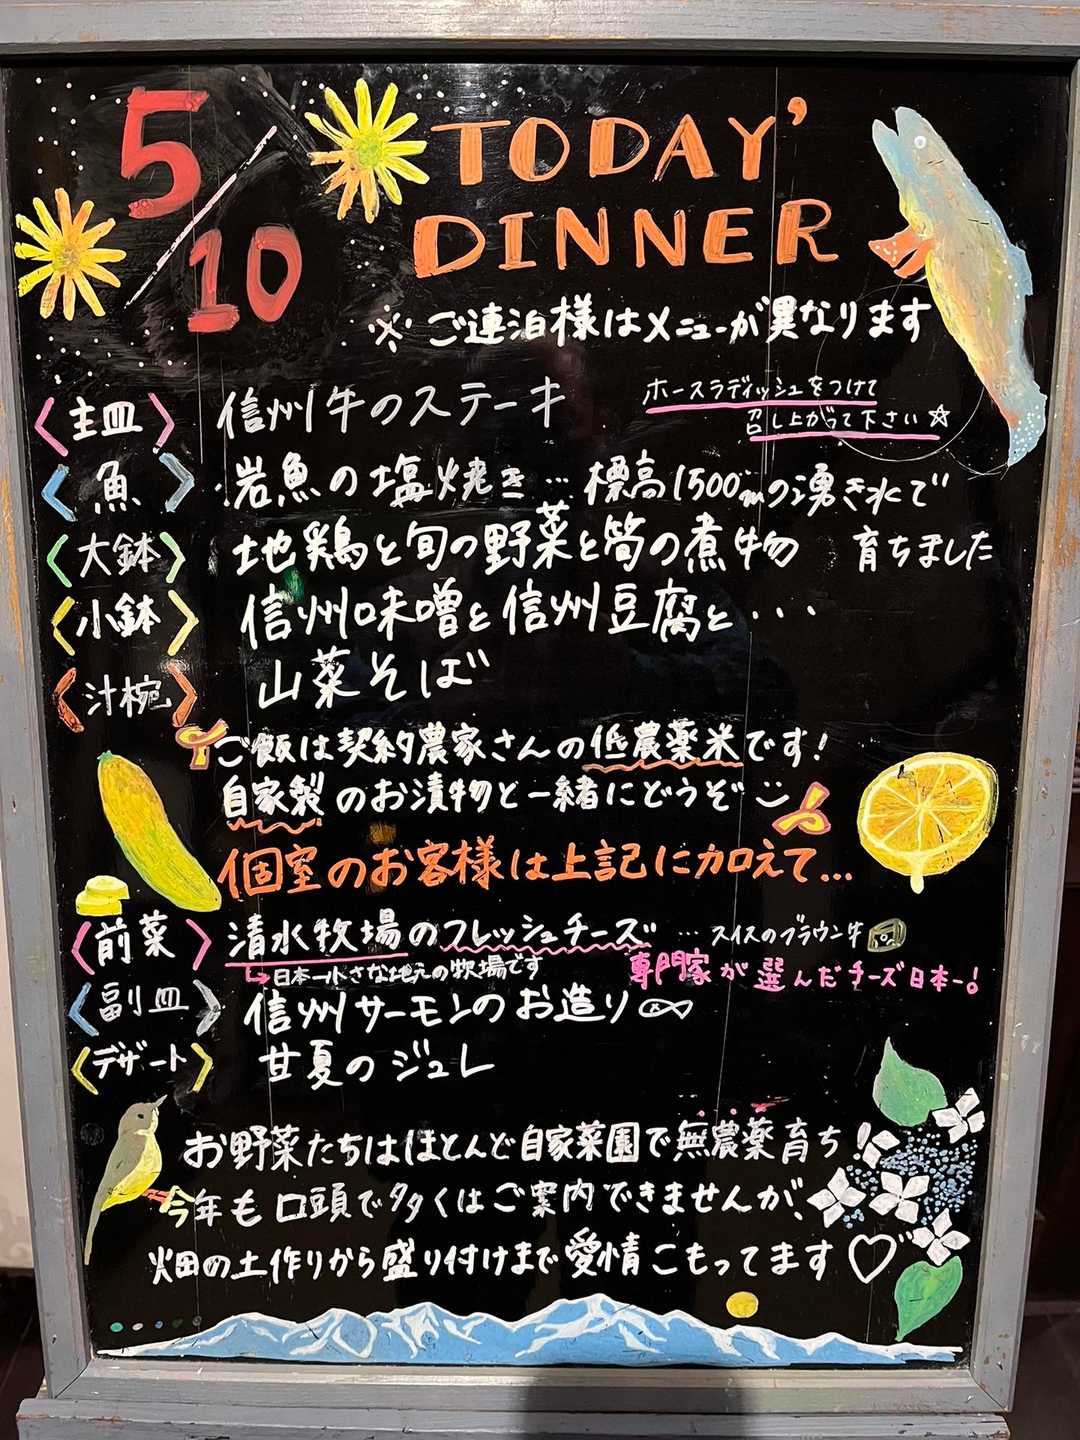 5/10
TODAY'
DINNER
※ご連泊様はメニューが異なります
〈主皿〉 信州牛のステーキ
ホースラディッシュをつけて
召し上がって下さい☆
〈魚〉 岩魚の塩焼き…標高1500mの湧き水で
育ちました
〈大鉢〉 地鶏と旬の野菜と筍の煮物
〈小鉢〉 信州味噌と信州豆腐と・・・
〈汁椀〉 山菜そば
ご飯は契約農家さんの低農薬米です!
自家製のお漬物と一緒にどうぞ
個室のお客様は上記に加えて…
〈前菜〉 清水牧場のフレッシュチーズ …スイスのブラウン牛
↳日本一小さな地元の牧場です
専門家が選んだチーズ日本一!
〈副皿〉 信州サーモンのお造り
〈デザート〉 甘夏のジュレ
お野菜たちはほとんど自家菜園で無農薬育ち!
今年も口頭で多くはご案内できませんが、
畑の土作りから盛り付けまで愛情こもってます♡